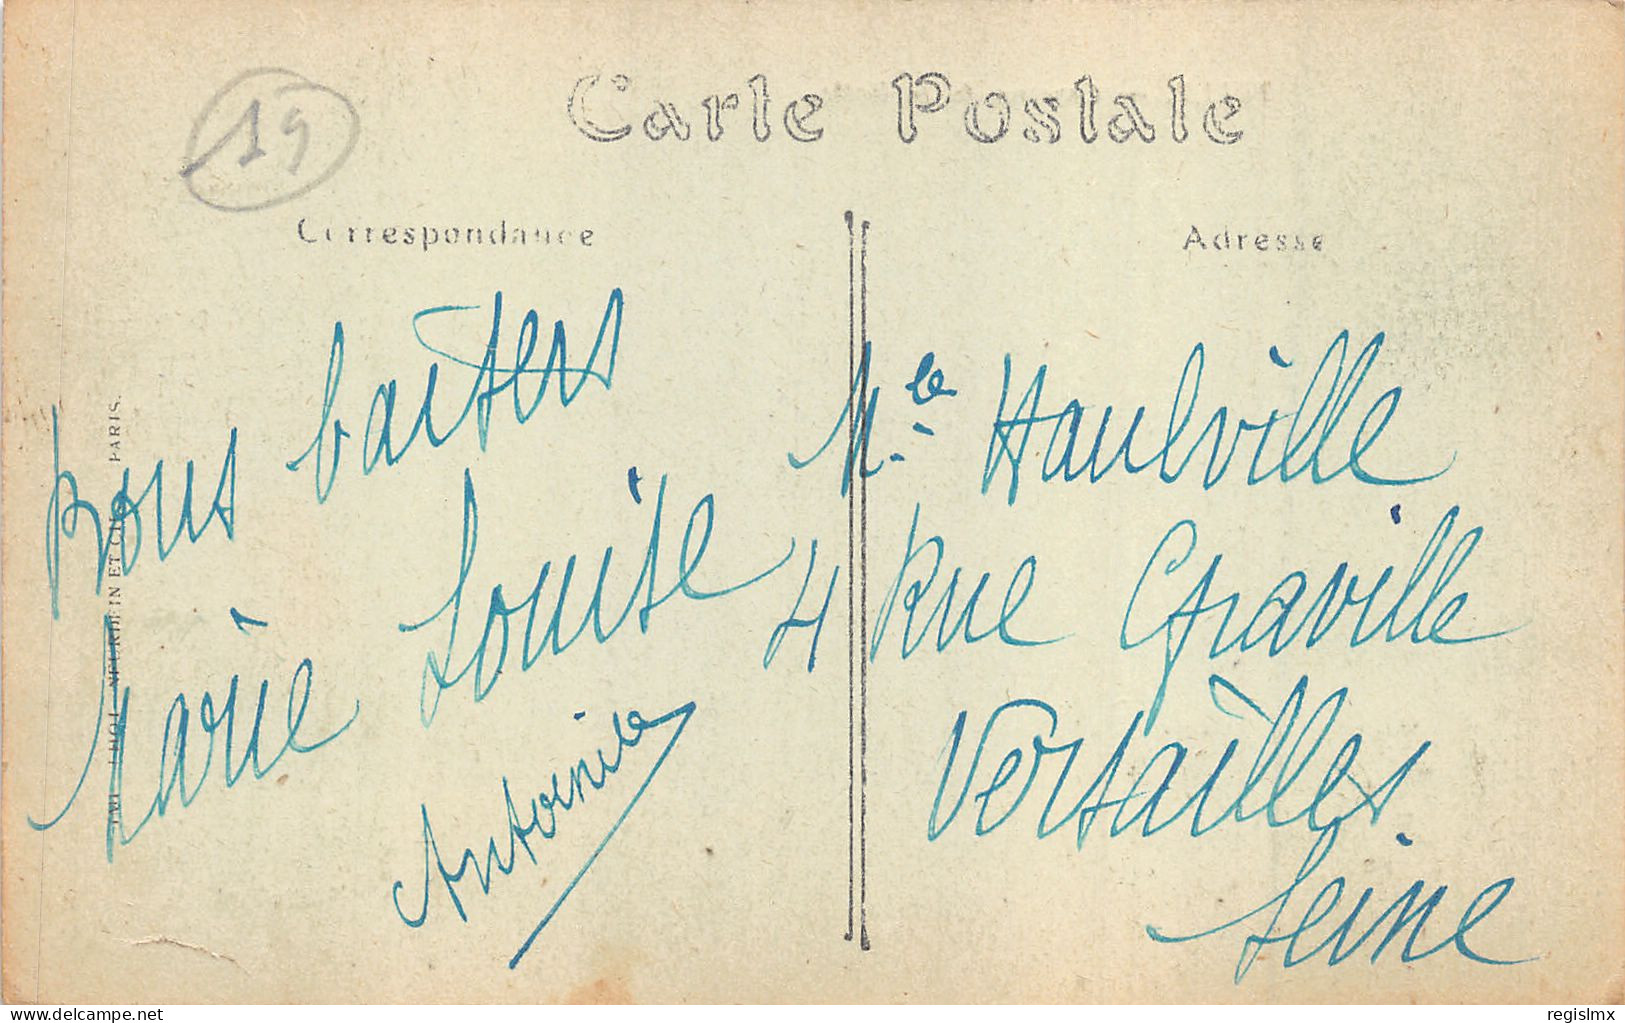 19
Carte Postale
Correspondance
Adresse
Bons baisers
Marie Louise
Antoinette
Mle Haulville
4 Rue Graville
Versailles
Seine
IMP. PHOT. NEURDEIN ET CIE. PARIS.
delcampe.net
regislmx